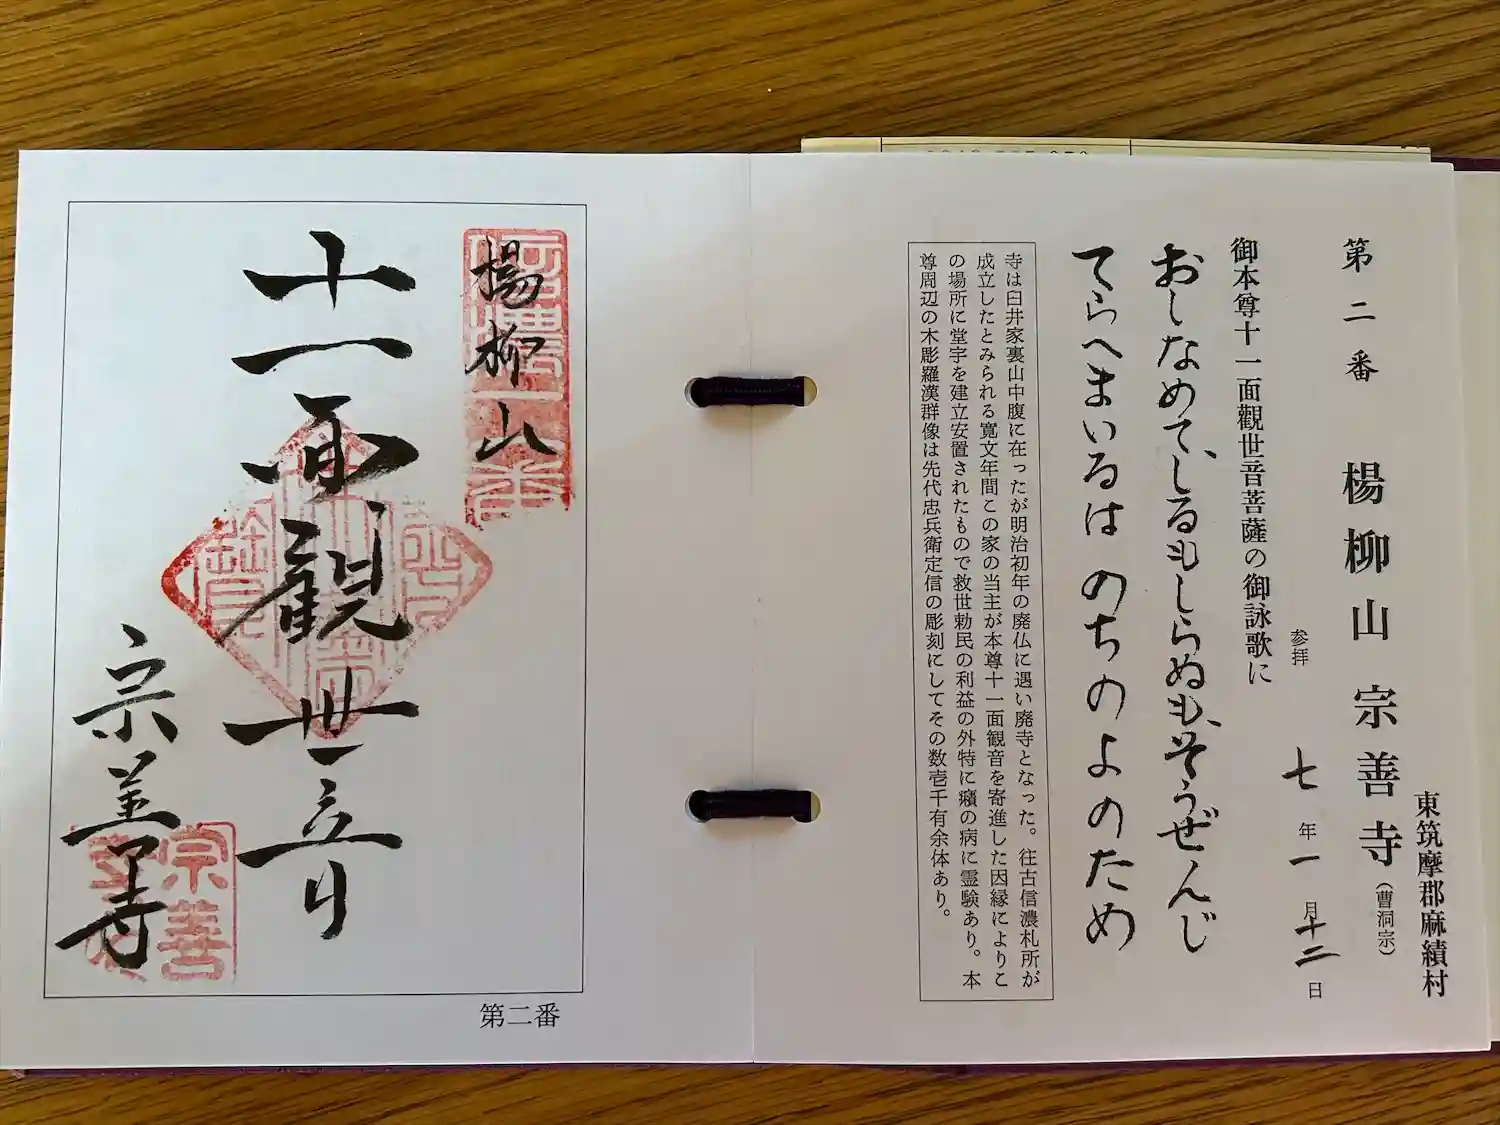 東筑摩郡麻績村
第二番 楊柳山 宗善寺(曹洞宗)
参拝 七年一月十二日
御本尊十一面觀世音菩薩の御詠歌に
おしなめて、しるもしらぬも、そうぜんじ
てらへまいるは のちのよのため
寺は臼井家裏山中腹に在ったが明治初年の廃仏に遇い廃寺となった。往古信濃札所が
成立したとみられる寛文年間この家の当主が本尊十一面観音を寄進した因縁によりこ
の場所に堂宇を建立安置されたもので救世勅民の利益の外特に癪の病に霊験あり。本
尊周辺の木彫羅漢群像は先代忠兵衛定信の彫刻にしてその数壱千有余体あり。
楊柳山
十一面観世音
宗善寺
宗善
第二番